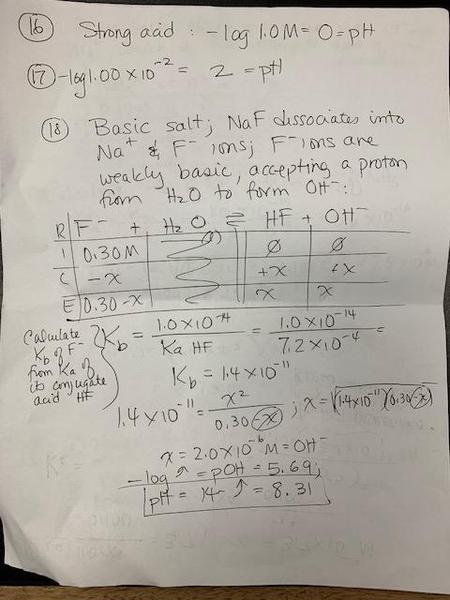 16 Strong acid : -log 1.0M = 0 = pH
17 -log 1.00 × 10⁻² = 2 = pH
18 Basic salt; NaF dissociates into
Na⁺ & F⁻ ions; F⁻ ions are
weakly basic, accepting a proton
from H₂O to form OH⁻:
R F⁻ + H₂O ⇌ HF + OH⁻
I 0.30M (l) Ø Ø
C -x +x +x
E 0.30-x x x
Calculate Kb of F⁻ from Ka of its conjugate acid HF
Kb = 1.0×10⁻¹⁴ / Ka HF = 1.0×10⁻¹⁴ / 7.2×10⁻⁴ =
Kb = 1.4×10⁻¹¹
1.4×10⁻¹¹ = x² / 0.30-x ; x = √(1.4×10⁻¹¹)(0.30-x)
x = 2.0×10⁻⁶ M = OH⁻
-log ↗ = pOH = 5.69;
pH = 14- ↗ = 8.31